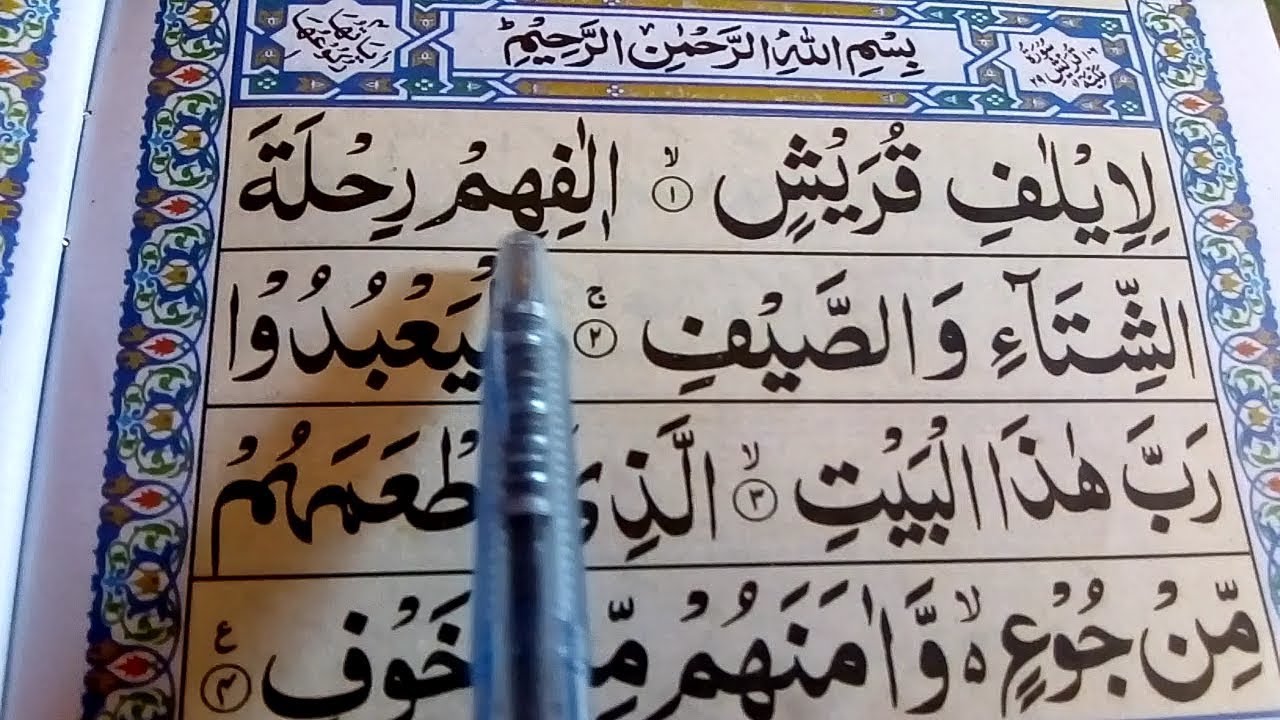 بِسْمِ اللّٰهِ الرَّحْمٰنِ الرَّحِيْمِ
لِاِيْلٰفِ قُرَيْشٍ ۙ﴿۱﴾ اٖلٰفِهِمْ رِحْلَةَ
الشِّتَآءِ وَالصَّيْفِ ۚ﴿۲﴾
رَبَّ هٰذَا الْبَيْتِ ۙ﴿۳﴾ الَّذِیْۤ
مِّنْ جُوْعٍ ۙ۬ وَّاٰمَنَهُمْ خَوْفٍ ﴿۴﴾ ع